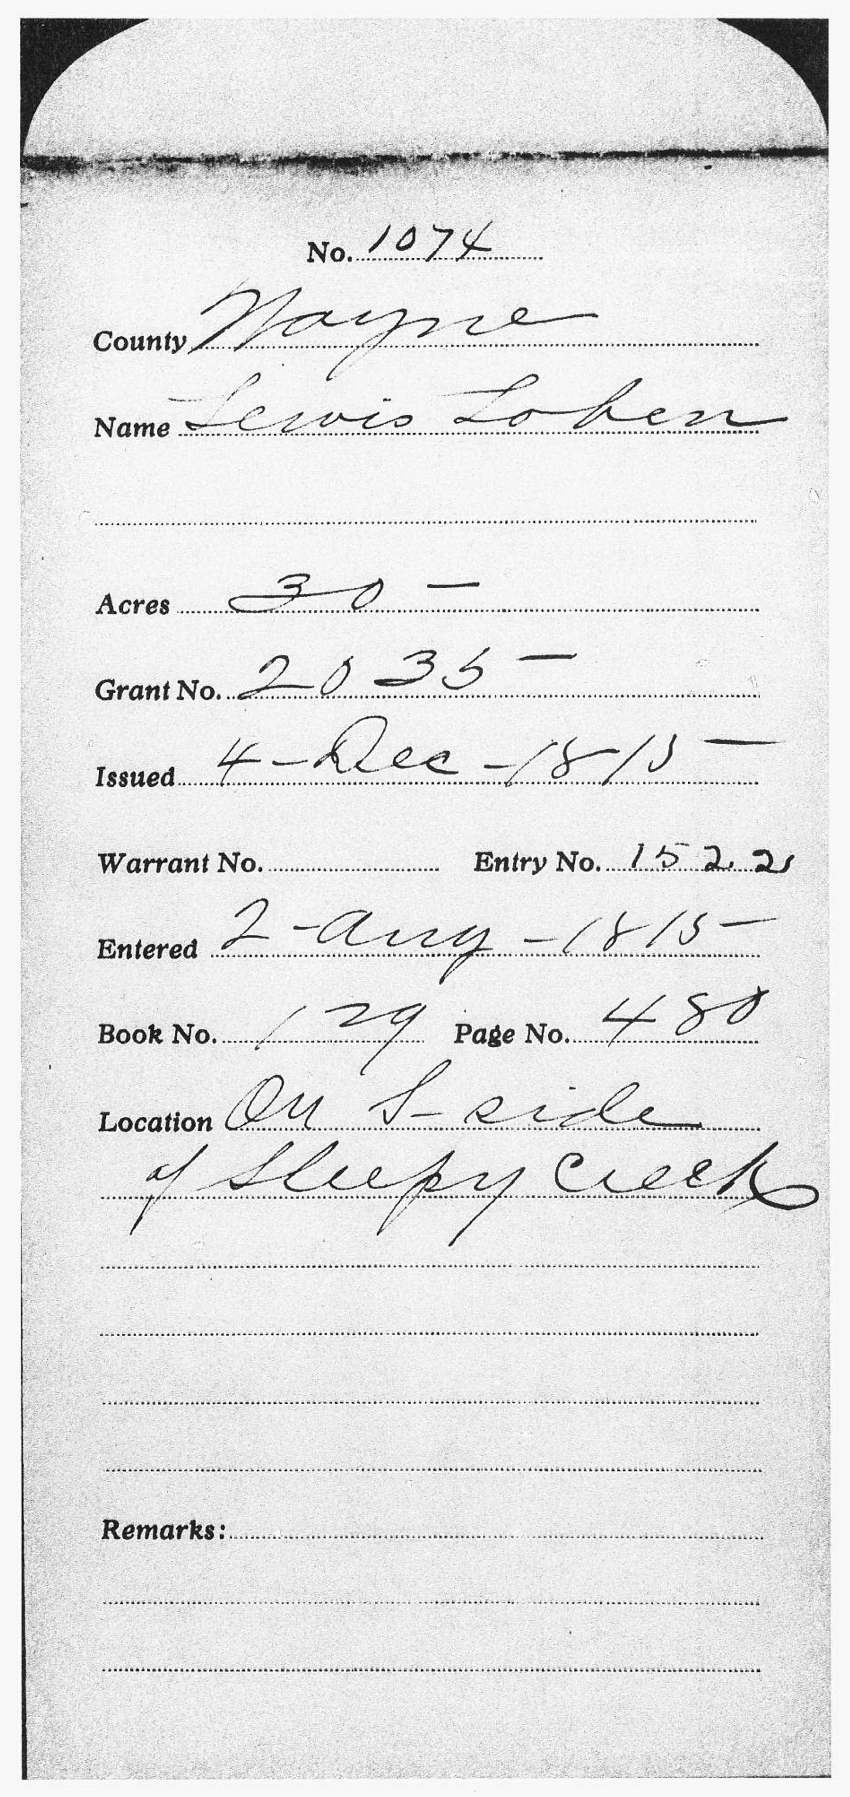 No. 1074
County Wayne
Name Lewis Cohen
Acres 30 —
Grant No. 2035 —
Issued 4 - Dec - 1815 —
Warrant No. Entry No. 1522
Entered 2 - Aug - 1815 —
Book No. 129 Page No. 480
Location On S - side
of Sleepy Creek
Remarks: